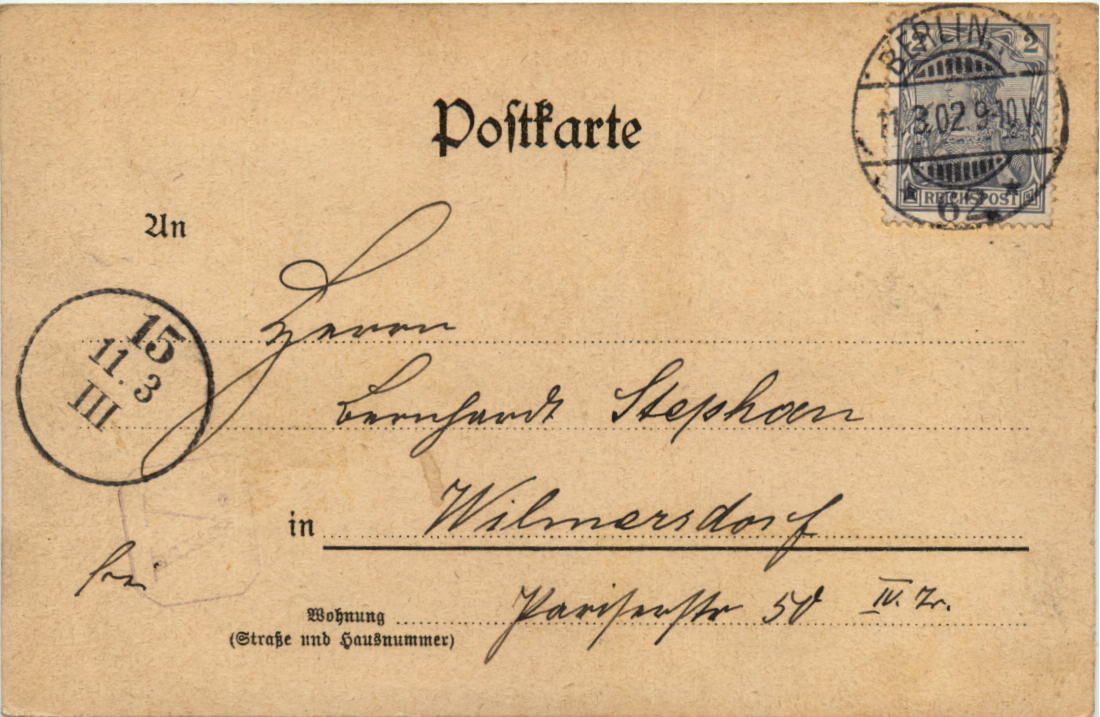 Postkarte
2 2
REICHSPOST
BERLIN.
11.3.02 9-10V.
* 62. *
An
15
11. 3
III
Herrn
Bernhardt Stephan
in Wilmersdorf
frei
Wohnung
(Straße und Hausnummer)
Pariserstr 50 IV. Tr.